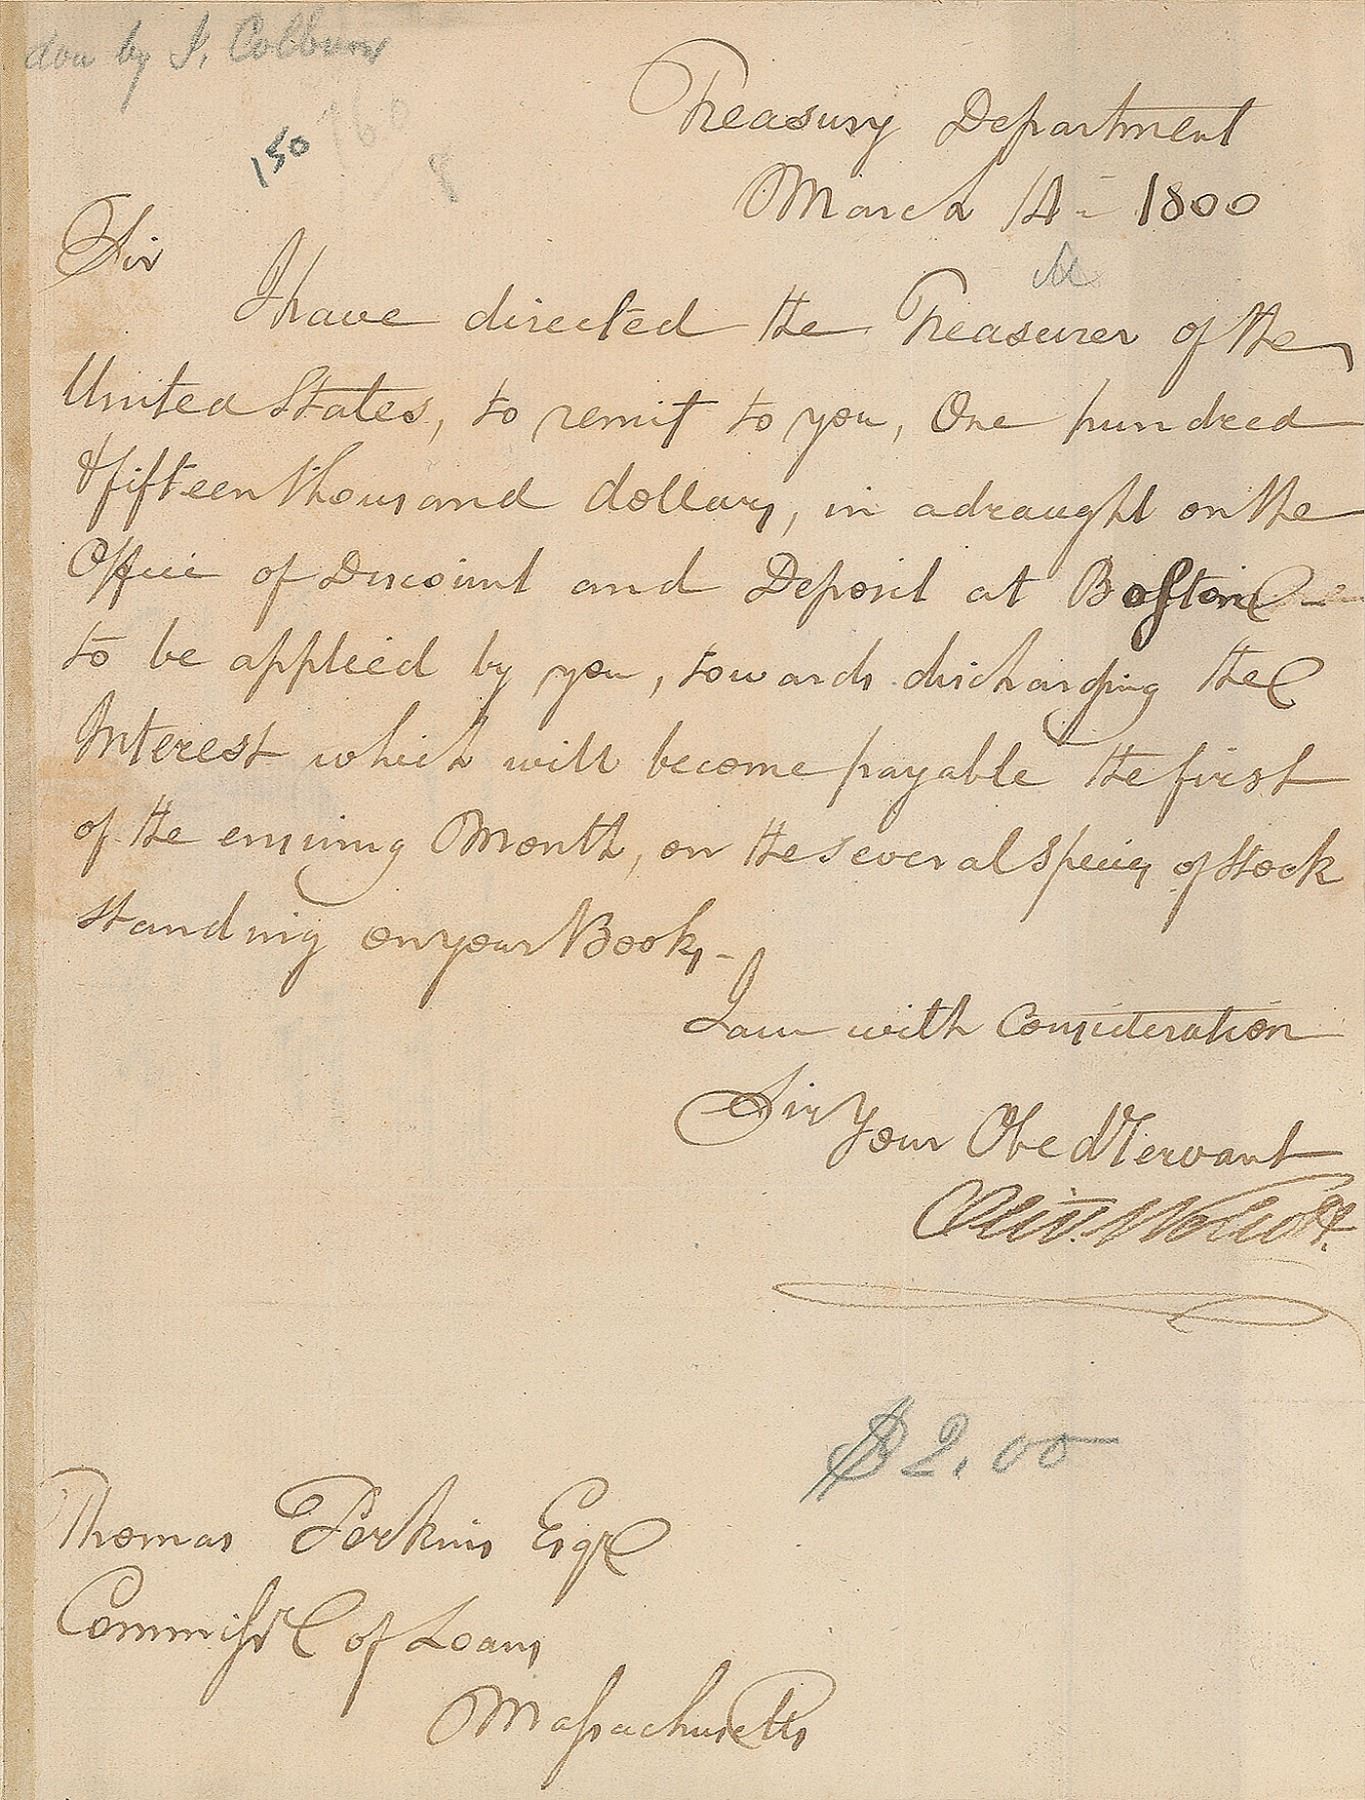 don by J. Colburn
150
8
Treasury Department
March 14 - 1800
Sir
I have directed the Treasurer of the
United States, to remit to you, One hundred
& fifteen thousand dollars, in a draught on the
Office of Discount and Deposit at Boston -
to be applied by you, towards discharging the
Interest which will become payable the first
of the ensuing Month, on the several species of stock
standing on your Books, -
I am with Consideration
Sir Your Obed Servant
Oliv. Wolcott.
$2.00
Thomas Perkins Esqr
Commissr of Loans
Massachusetts